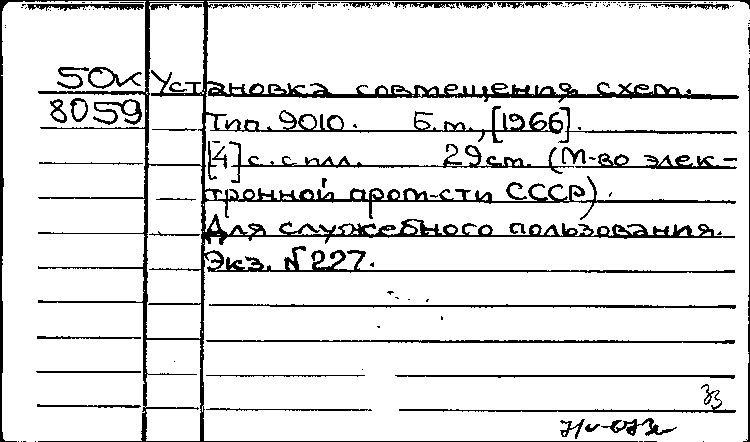 50к Установка совмещения схем.
8059
Тип. 9010. Б.м., [1966].
[4] с. с илл. 29 см. (М-во элек-
тронной пром-сти СССР).
Для служебного пользования.
Экз. № 227.